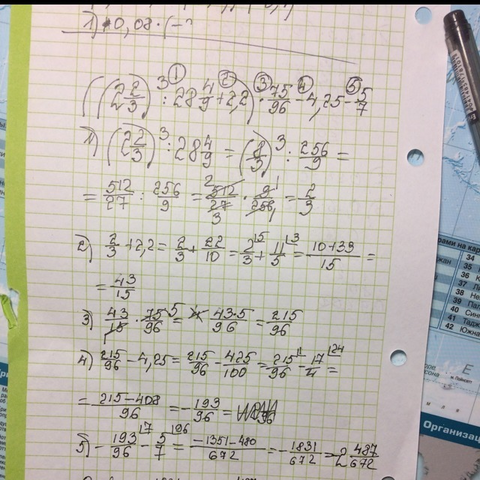 1) 0,08 · (-
((2 2/3)³ : 28 4/9 + 2,2) · 75/96 - 4,25 - 5/7
1) (2 2/3)³ : 28 4/9 = (8/3)³ : 256/9 =
= 512/27 : 256/9 = 512/27 · 9/256 = 2/3
2) 2/3 + 2,2 = 2/3 + 22/10 = 2/3 + 11/5 = 10+33/15 =
= 43/15
3) 43/15 · 75/96 = 43·5/96 = 215/96
4) 215/96 - 4,25 = 215/96 - 425/100 = 215/96 - 17/4 =
= 215-408/96 = -193/96 =
5) -193/96 - 5/7 = -1351-480/672 = -1831/672 = -2 487/672
34
35
36
37
38
39
40
41
42
Организа